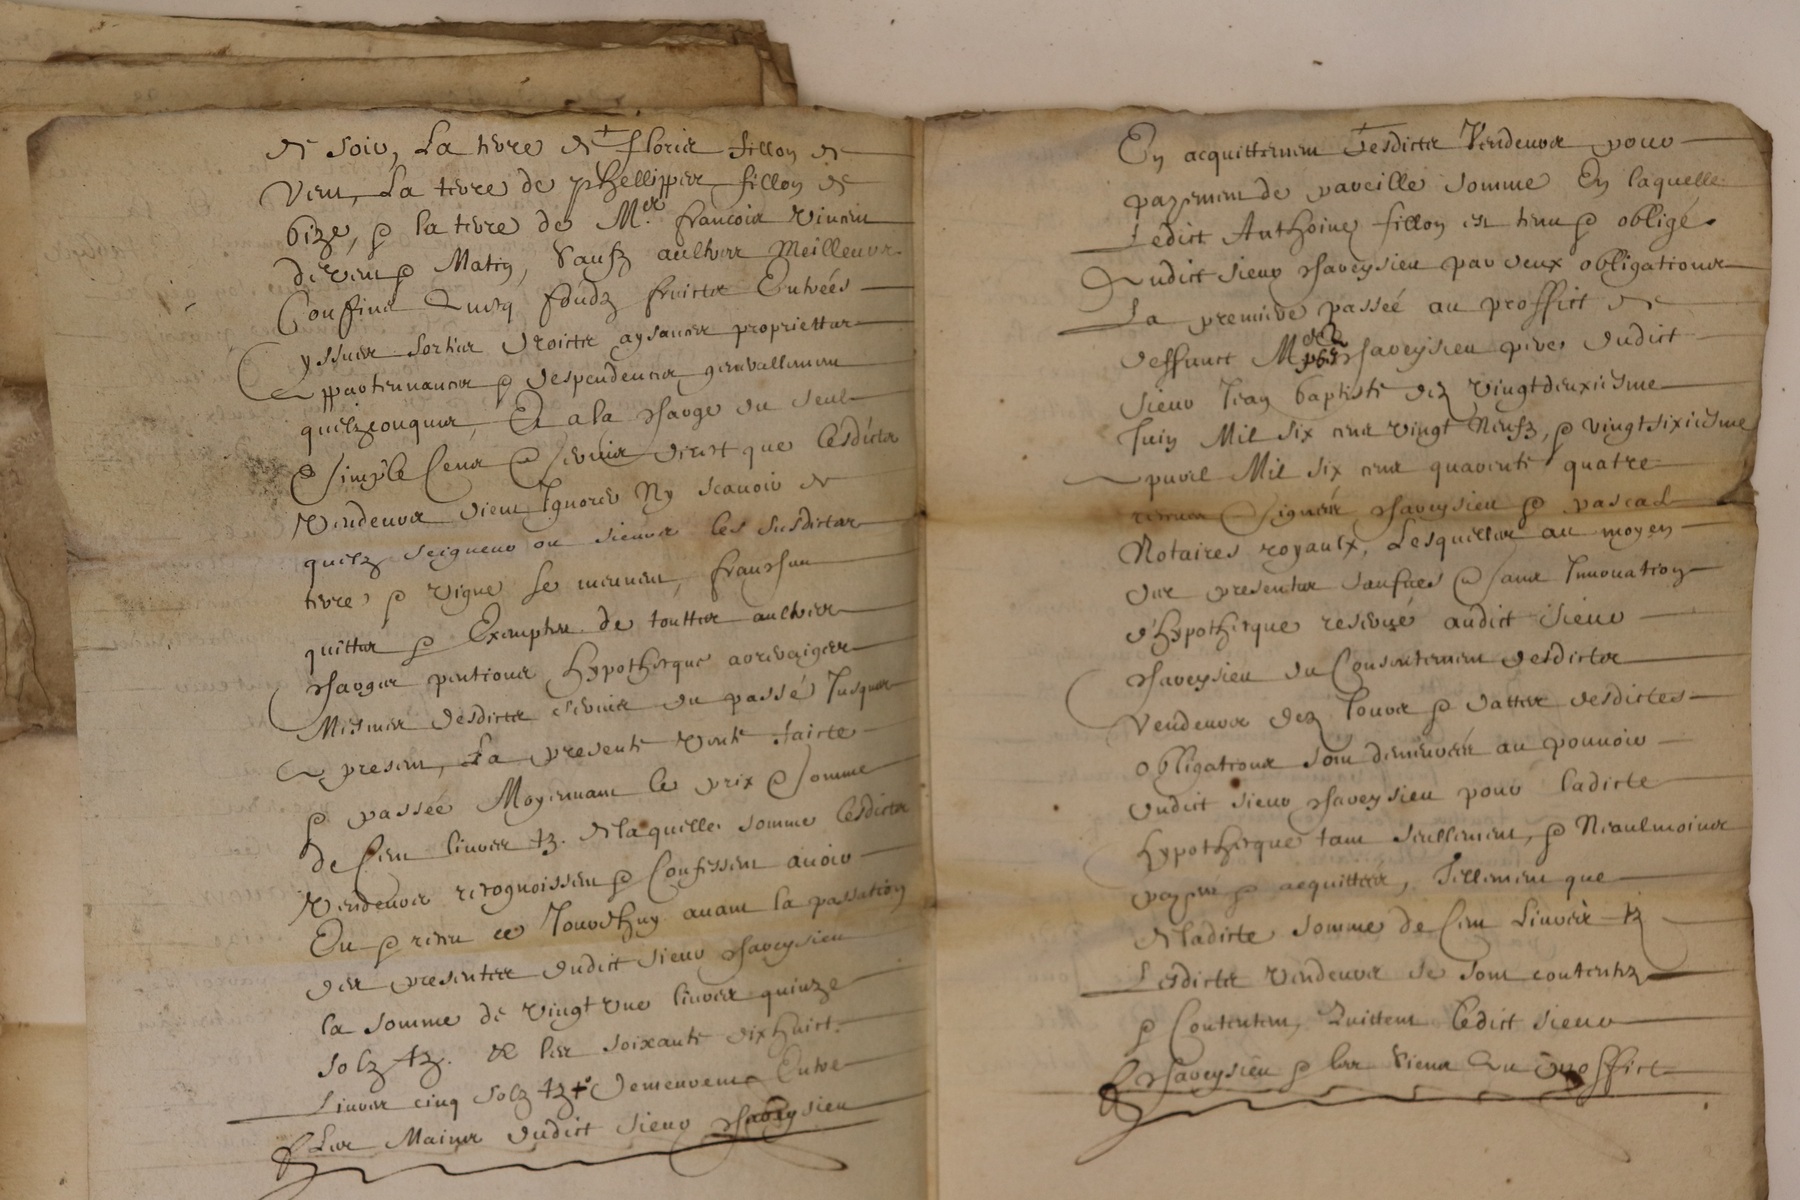 de soir, La terre de Floris fillon de
vent, La terre de phellippes fillon de
bize, & la terre de Mre. francois vincent
de vent & Matin, Saufz aultres Meilleurs
Confins Avecq fondz fruictz Entrées
yssues sorties droictz aysances proprietes
Appartenances & despendences generallement
quelzconques, Et a la charge du seul
& simple Cens & servis direct que lesdictz
Vendeurs dient Ignorer Ny scauoir de
quelz seigneur ou sieurs les susdictes
terre & vigne se meuuent, franches
quittes & Exemptes de touttes aultres
charges pentions hypotheque arreraiges
Mesmes desdictz servis du passé Jusques
A present, La presente vente faicte
& passée Moyennant le prix & somme
de Cent liures tz. de laquelle somme lesdictz
Vendeurs recognoissent & Confessent auoir
Eu & receu ce Jourdhuy auant la passation
des presentes dudict sieur Chaveysieu
la somme de vingt une liures quinze
solz tz. & les soixante dix huict
Liures cinq solz tz + demeurent Entre
Les Mains dudict sieur Chaveysieu
En acquittement desdictz Vendeurs pour
payement de pareille somme En laquelle
Ledict Anthoine fillon est tenu & obligé
Audict sieur Chaveysieu par deux obligations
La premiere passée au proffict de
deffunct Mre Chaveysieu pere dudict
sieur Jean baptiste dez vingtdeuxiesme
Juin Mil six cent vingt Neufz, & vingtsixiesme
Apvril Mil six cent quarente quatre
receues & signées Chaveysieu & pascal
Notaires royaulx, Lesquelles au moyen
des presentes saufues & sans Innouation
d'hypotheque reservé audict sieur
Chaveysieu du Consentement desdictz
Vendeurs dez Jours & dattes desdictes
obligations sont demeurées au pouuoir
dudict sieur Chaveysieu pour ladicte
hypotheque tant seullement, & Neaulmoings
payées & acquittées, Tellement que
de ladicte somme de Cent Liures tz
Lesdictz vendeurs se sont contentez
& Contentent, Quittent Ledict sieur
Chaveysieu & les siens Au proffict